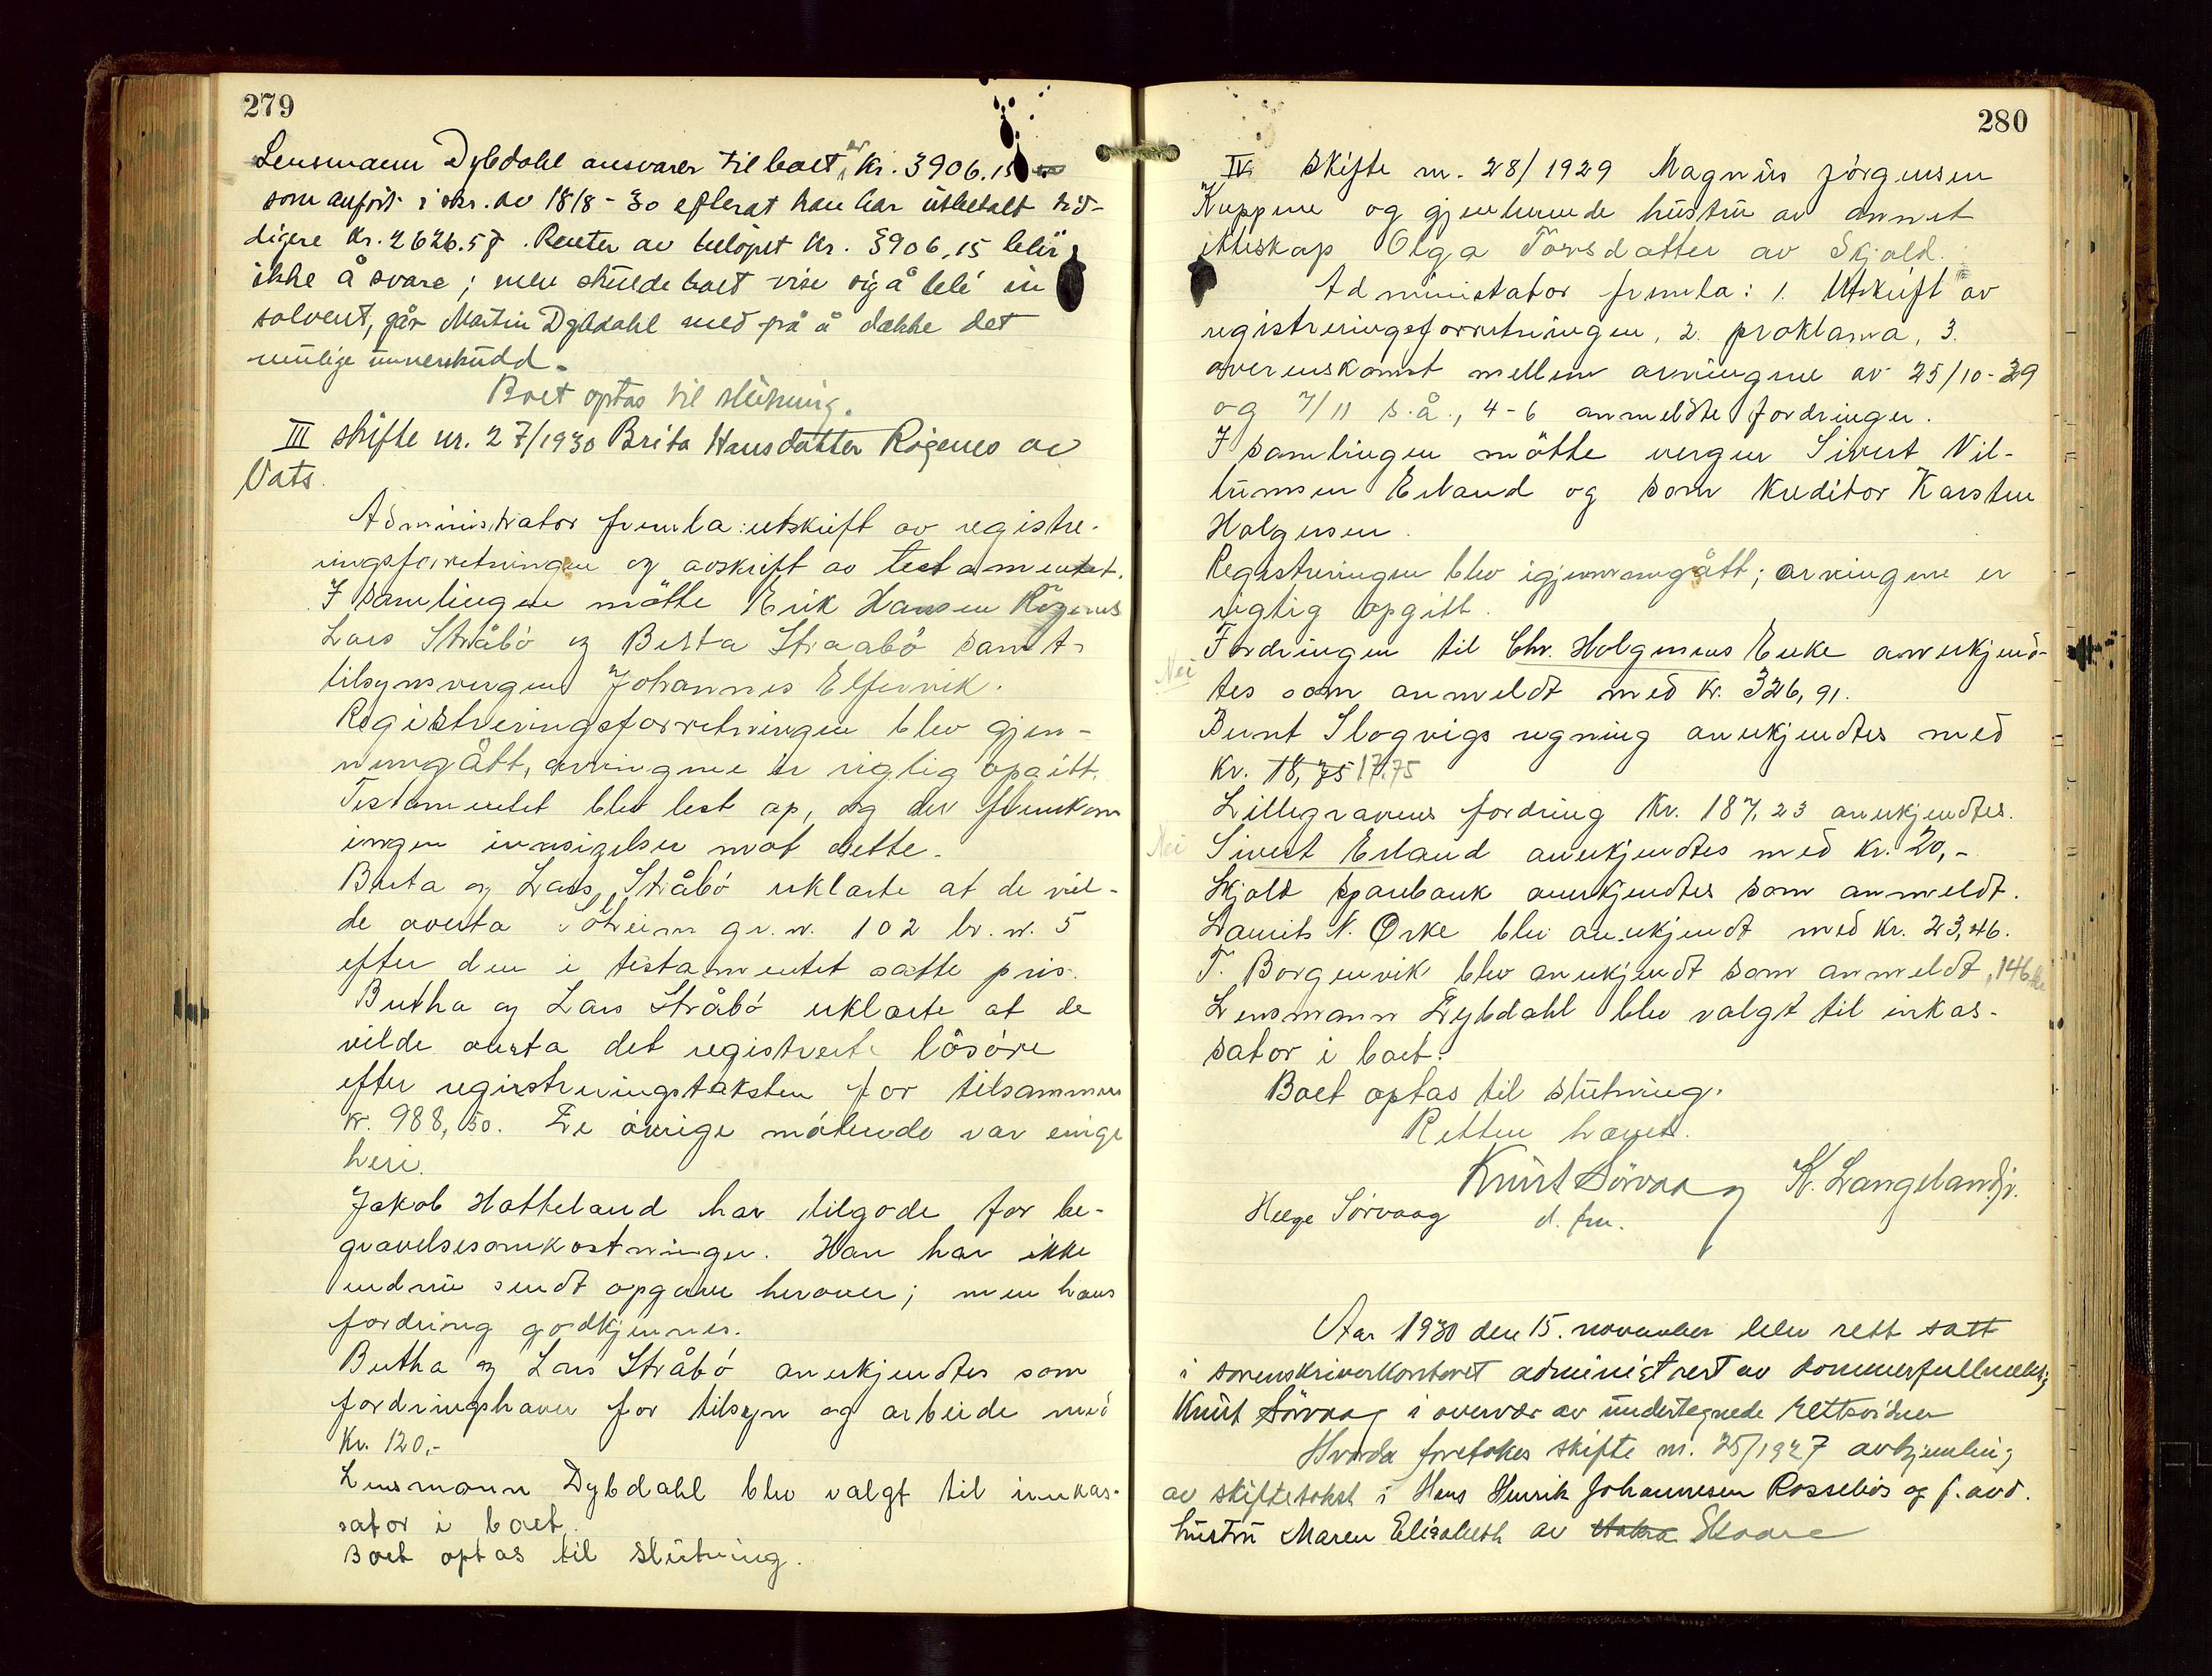 279
Lensmann Dybdahl ansvarer til boet er kr. 3906.15
som anført i skr. av 18/8-30 efterat han har utbetalt tid-
ligere kr. 2626.57. Renter av beløpet kr. 3906,15 blir
ikke å svare; men skulde boet vise sig å bli in
solvent, går Martin Dybdahl med på å dekke det
mulige underskudd.
Boet optas til slutning.
III skifte nr. 27/1930 Brita Hansdatter Røgenes av
Vats.
Administrator fremla: utskrift av registre-
ringsforretningen og avskrift av testamentet.
I samlingen møtte Erik Hansen Røgenes
Lars Stråbø og Berta Straabø samt
tilsynsvergen Johannes Elfervik.
Registreringsforretningen blev gjen-
nemgått, arvingene er rigtig opgitt.
Testamentet blev lest op, og der fremkom
ingen innsigelser mot dette.
Berta og Lars Stråbø erklærte at de vil-
de overta Sólheim gr. nr. 102 br. nr. 5
efter den i testamentet satte pris.
Bertha og Lars Stråbø erklærte at de
vilde overta det registrerte løsøre
efter registreringstaksten for tilsammen
kr. 988,50. De øvrige møtende var enige
heri.
Jakob Hatteland har tilgode for be-
gravelsesomkostninger. Han har ikke
endnu sendt opgave herover; men hans
fordring godkjennes.
Bertha og Lars Stråbø anerkjendtes som
fordringshaver for tilsyn og arbeide med
kr. 120,-
Lensmann Dybdahl blev valgt til innkas-
sator i boet.
Boet optas til slutning.
280
IV. Skifte nr. 28/1929 Magnus Jørgensen
Kuppene og gjenlevende hustru av annet
ekteskap Olga Torsdatter av Skjold.
Administator fremla: 1. Utskrift av
registreringsforretningen, 2. proklama, 3.
overenskomst mellem arvingene av 25/10-29
og 7/11 s.å., 4-6 anmeldte fordringer.
I samlingen møtte vergen Sivert Vil-
lumsen Erland og som kreditor Karsten
Holgersen.
Registreringen blev igjennemgått; arvingene er
rigtig opgitt.
Fordringen til Chr. Holgersens Enke anerkjend-
Nei
tes som anmeldt med kr. 326,91.
Bernt Slogvigs regning anerkjendtes med
kr. 18,75 17.75
Lillegravens fordring kr. 187,23 anerkjendtes.
Nei
Sivert Erland anerkjendtes med kr. 20,-
Skjold sparebank anerkjendtes som anmeldt.
Laurits N. Ørke blev anerkjendt med kr. 23,46.
T. Borgenvik blev anerkjendt som anmeldt, 146 kr
Lensmann Dybdahl blev valgt til inkas-
sator i boet.
Boet optas til slutning.
Retten hævet.
Knut Sørvaag K. Langeland jr.
Helge Sørvaag d. fm.
Aar 1930 den 15. november blev rett satt
i sorenskriverkontoret administrert av dommerfullmektig
Knut Sørvaag i overvær av undertegnede rettsvidner
Hvorda foretokes skifte nr. 25/1927 avhjemling
av skiftetakst i Hans Henrik Johannesen Rossebøs og f. avd.
hustru Maren Elisabeth av Skaare